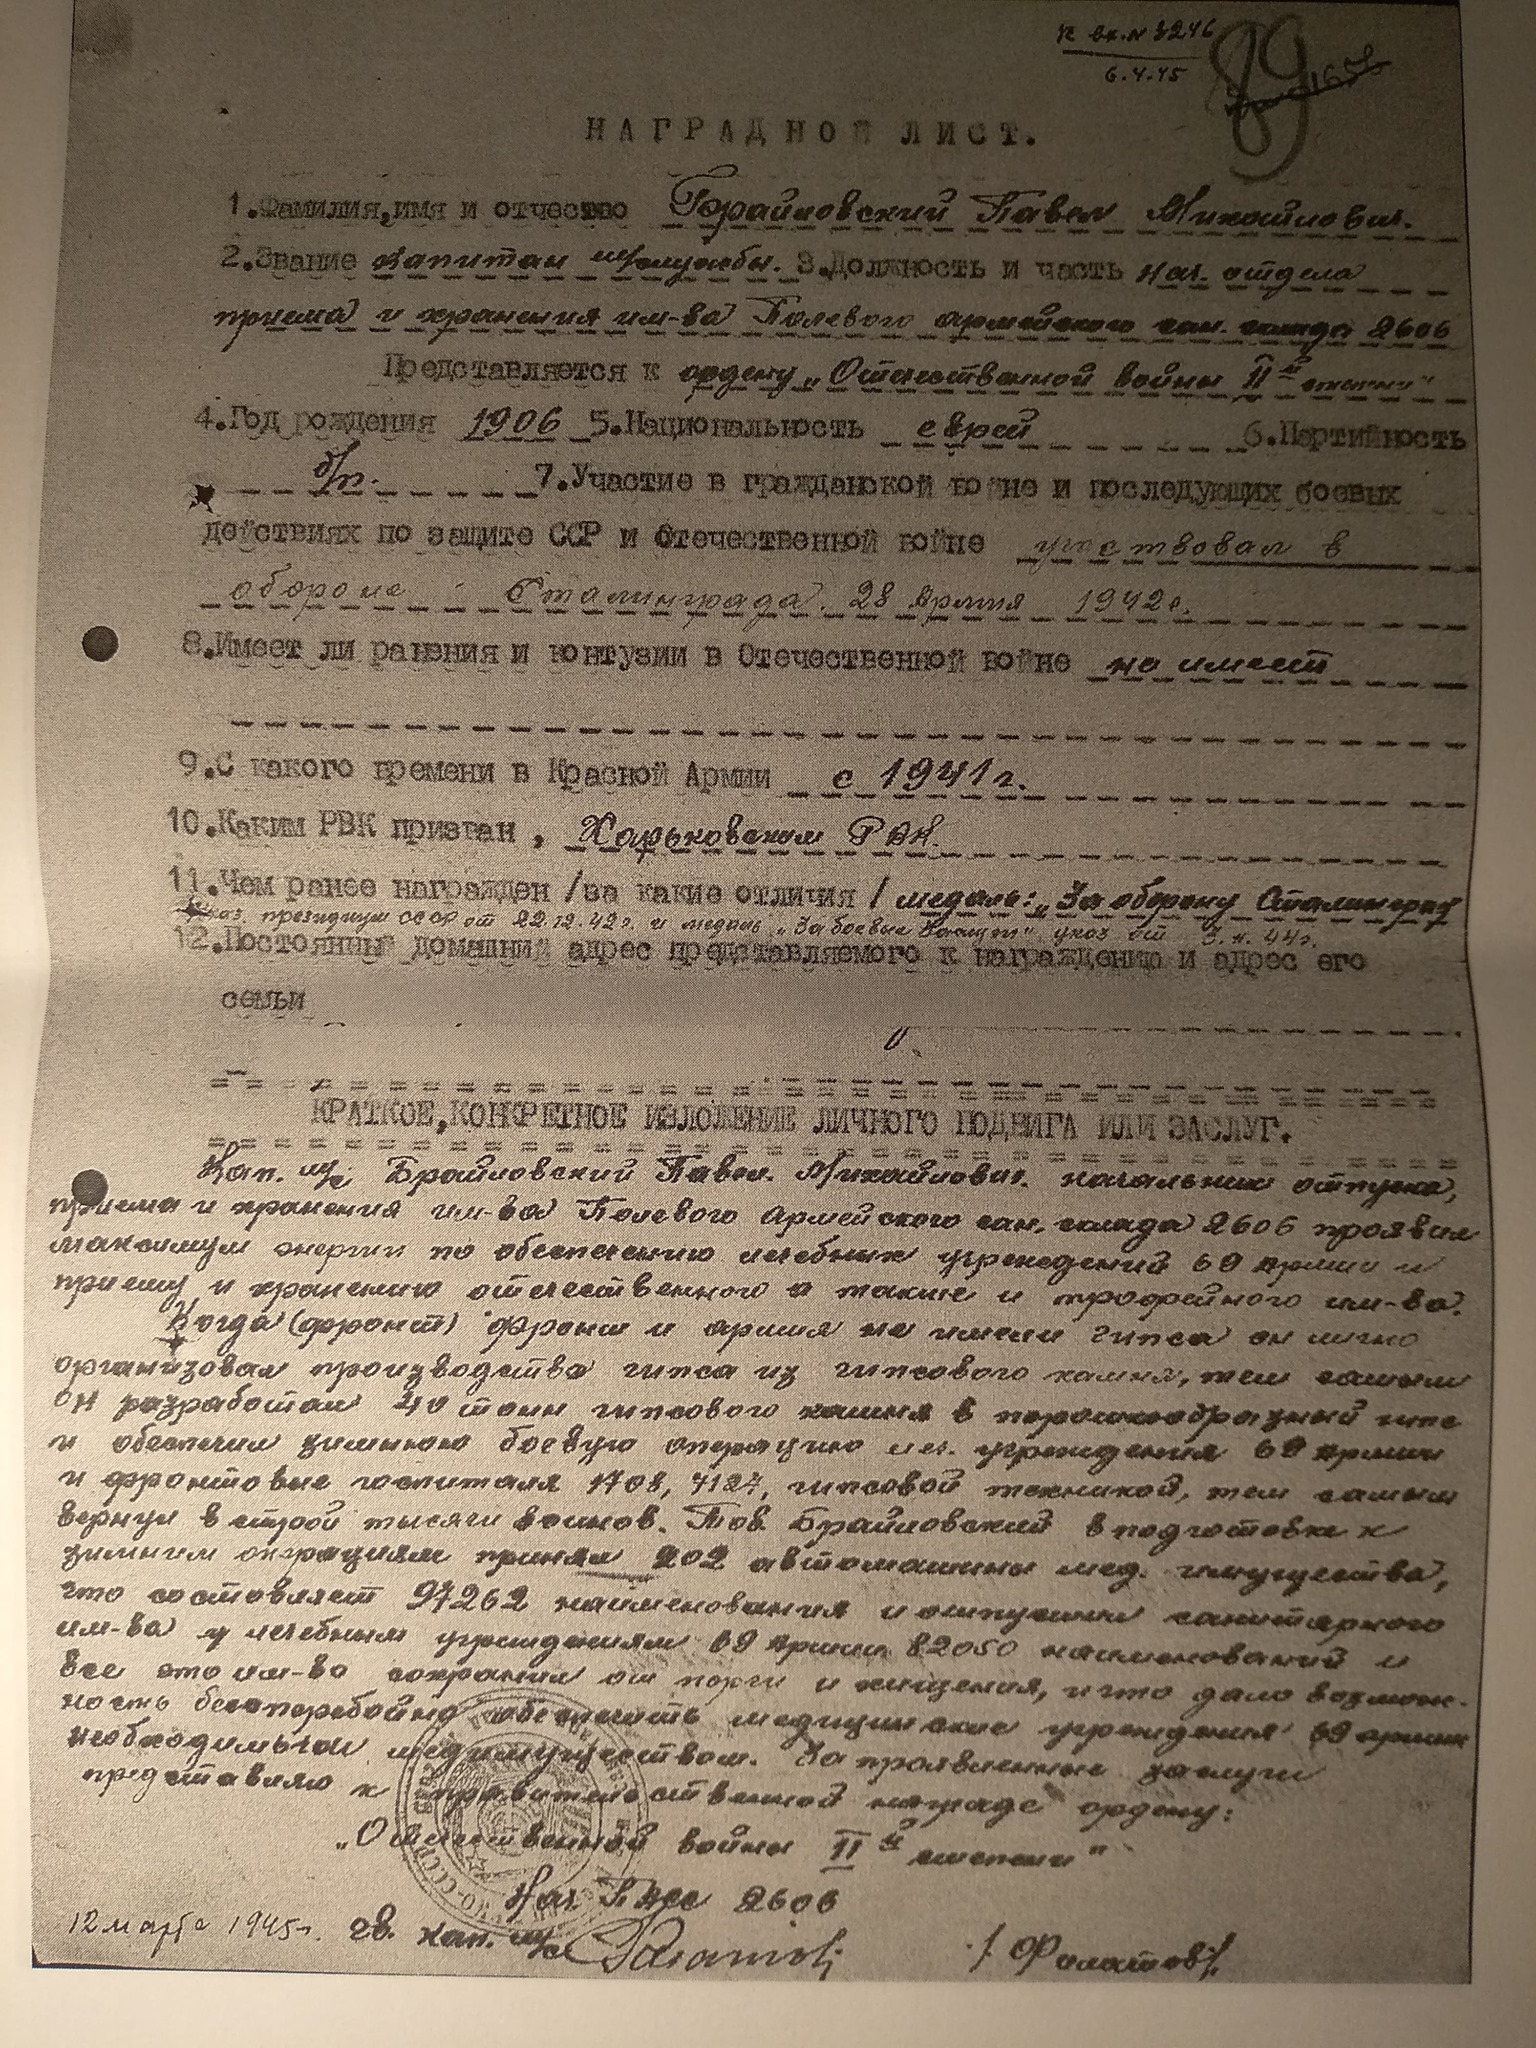 К вх. № 3246
6.4.45
89
НАГРАДНОЙ ЛИСТ.
1.Фамилия,имя и отчество Брайловский Павел Михайлович.
2.Звание капитан м/службы. 3.Должность и часть нач. отдела
приема и хранения им-ва Полевого армейского сан. склада 2606
Представляется к ордену „Отечественной войны II й степени"
4.Год рождения 1906 5.Национальность еврей 6.Партийность
б/п. 7.Участие в гражданской войне и последующих боевых
действиях по защите СССР и Отечественной войне участвовал в
обороне Сталинграда. 28 Армия 1942г.
8.Имеет ли ранения и контузии в Отечественной войне не имеет
9.С какого времени в Красной Армии с 1941г.
10.Каким РВК призван , Харьковским РВК.
11.Чем ранее награжден /за какие отличия / медаль: „За оборону Сталинграда
указ. президиум СССР от 22.12.42г. и медаль „За боевые заслуги" указ от 44г.
12.Постоянный домашний адрес представляемого к награждению и адрес его
семьи
КРАТКОЕ,КОНКРЕТНОЕ ИЗЛОЖЕНИЕ ЛИЧНОГО ПОДВИГА ИЛИ ЗАСЛУГ.
Кап. м/с Брайловский Павел Михайлович. начальник отпуска,
приема и хранения им-ва Полевого Армейского сан. склада 2606 проявил
максимум энергии по обеспечению лечебных учреждений 69 Армии и
приему и хранению отечественного а также и трофейного им-ва.
Когда (фронт) фронт и армия не имели гипса он лично
организовал производства гипса из гипсового камня, тем самым
он разработал 40 тонн гипсового камня в порошкообразный гипс
и обеспечил зимнюю боевую операцию леч. учреждения 69 Армии
и фронтовые госпиталя 1708, 4127, гипсовой техникой, тем самым
вернув в строй тысячи воинов. Тов. Брайловский в подготовке к
зимним операциям принял 202 автомашины мед. имущества,
что составляет 97262 наименования и отпустил санитарного
им-ва лечебным учреждениям 69 Армии 82050 наименований и
все это им-во сохранил от порчи и хищения, что дало возмож-
ность бесперебойно обеспечить медицинские учреждения 69 армии
необходимым медимуществом. За проявленные заслуги
представляю к правительственной награде ордену:
„Отечественной войны II й степени"
Нач. ПАСС 2606
12 марта 1945г. гв. кап. м/с /Филатов/.